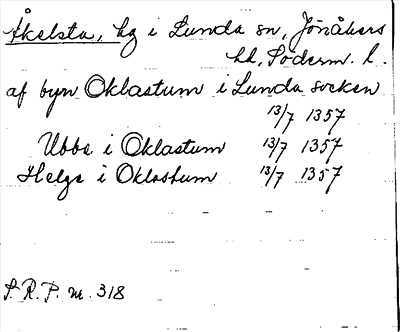 Åkelsta, hg i Lunda sn, Jönåkers
hd, Söderm. l.
af byn Oklastum i Lunda socken
13/7 1357
Ubbe i Oklastum 13/7 1357
Helge i Oklastum 13/7 1357
S. R. P. nr. 318